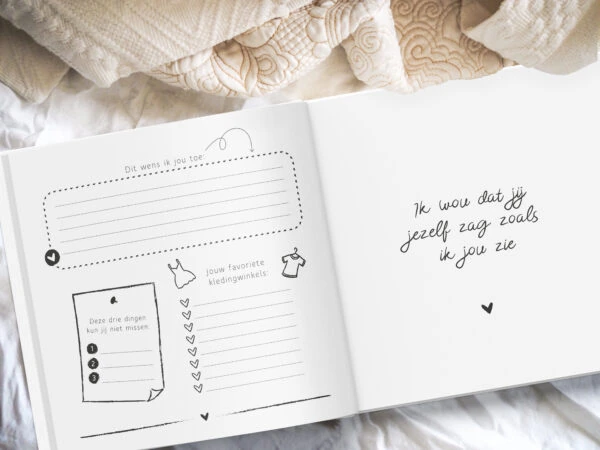 Dit wens ik jou toe:
Deze drie dingen
kun jij niet missen:
1
2
3
Jouw favoriete
kledingwinkels:
Ik wou dat jij
jezelf zag zoals
ik jou zie